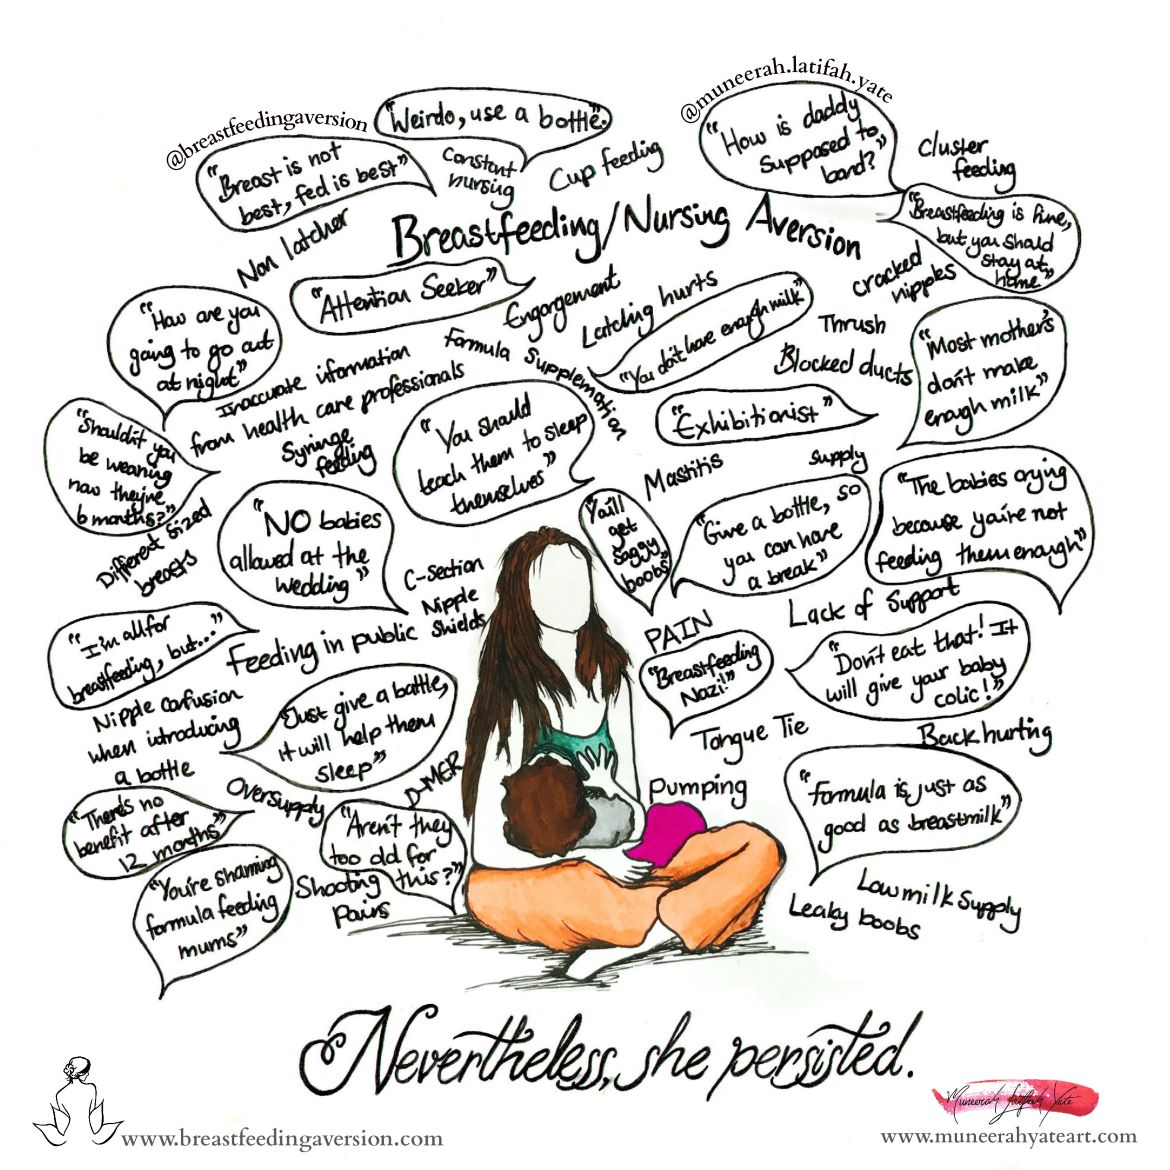 @breastfeedingaversion
"Weirdo, use a bottle".
@muneerah.latifah.yate
"Breast is not
best, fed is best"
Constant
nursing
Cup feeding
"How is daddy
supposed to
bond?"
Cluster
feeding
Non latcher
Breastfeeding/Nursing Aversion
"Breastfeeding is fine,
but you should
stay at
home."
"Attention Seeker"
Engorgement
Latching hurts
cracked
nipples
"How are you
going to go out
at night"
Inaccurate information
from health care professionals
Formula Supplementation
"You don't have enough milk"
Thrush
Blocked ducts
"Most mother's
don't make
enough milk"
"Shouldn't you
be weaning
now they're
6 months?"
Syringe
feeding
"You should
teach them to sleep
themselves"
"Exhibitionist"
Mastitis
Supply
Different sized
breasts
"NO babies
allowed at the
wedding"
"You'll
get
saggy
boobs"
"Give a bottle, so
you can have
a break"
"The babies crying
because you're not
feeding them enough"
C-Section
Nipple
Shields
"I'm all for
breastfeeding, but..."
Feeding in public
PAIN
Lack of support
"Breastfeeding
Nazi!"
"Don't eat that! It
will give your baby
colic!"
Nipple confusion
when introducing
a bottle
"Just give a bottle,
it will help them
sleep"
Tongue Tie
Back hurting
"There's no
benefit after
12 months"
Oversupply
D-MER
"Aren't they
too old for
this?"
Pumping
"Formula is just as
good as breastmilk"
"You're shaming
formula feeding
mums"
Shooting
pains
Leaky boobs
Low milk supply
Nevertheless, she persisted.
Muneerah Latifah Yate
www.breastfeedingaversion.com
www.muneerahyateart.com